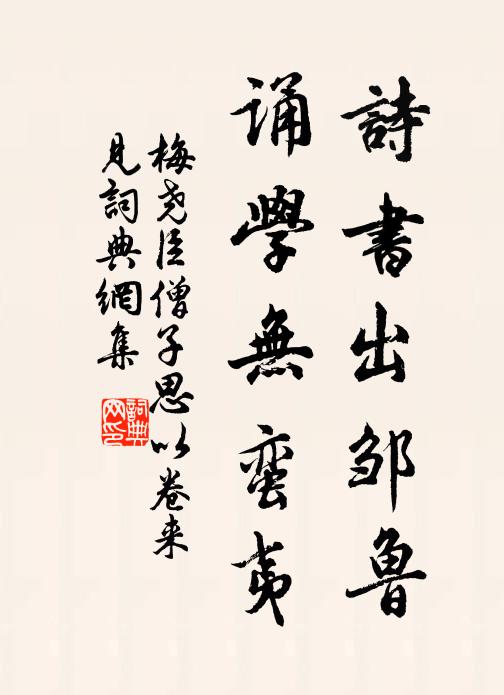 詩書出邹魯
诵學無蛮夷
梅尧臣僧子思以卷来
見詞典網集
詞典
网印